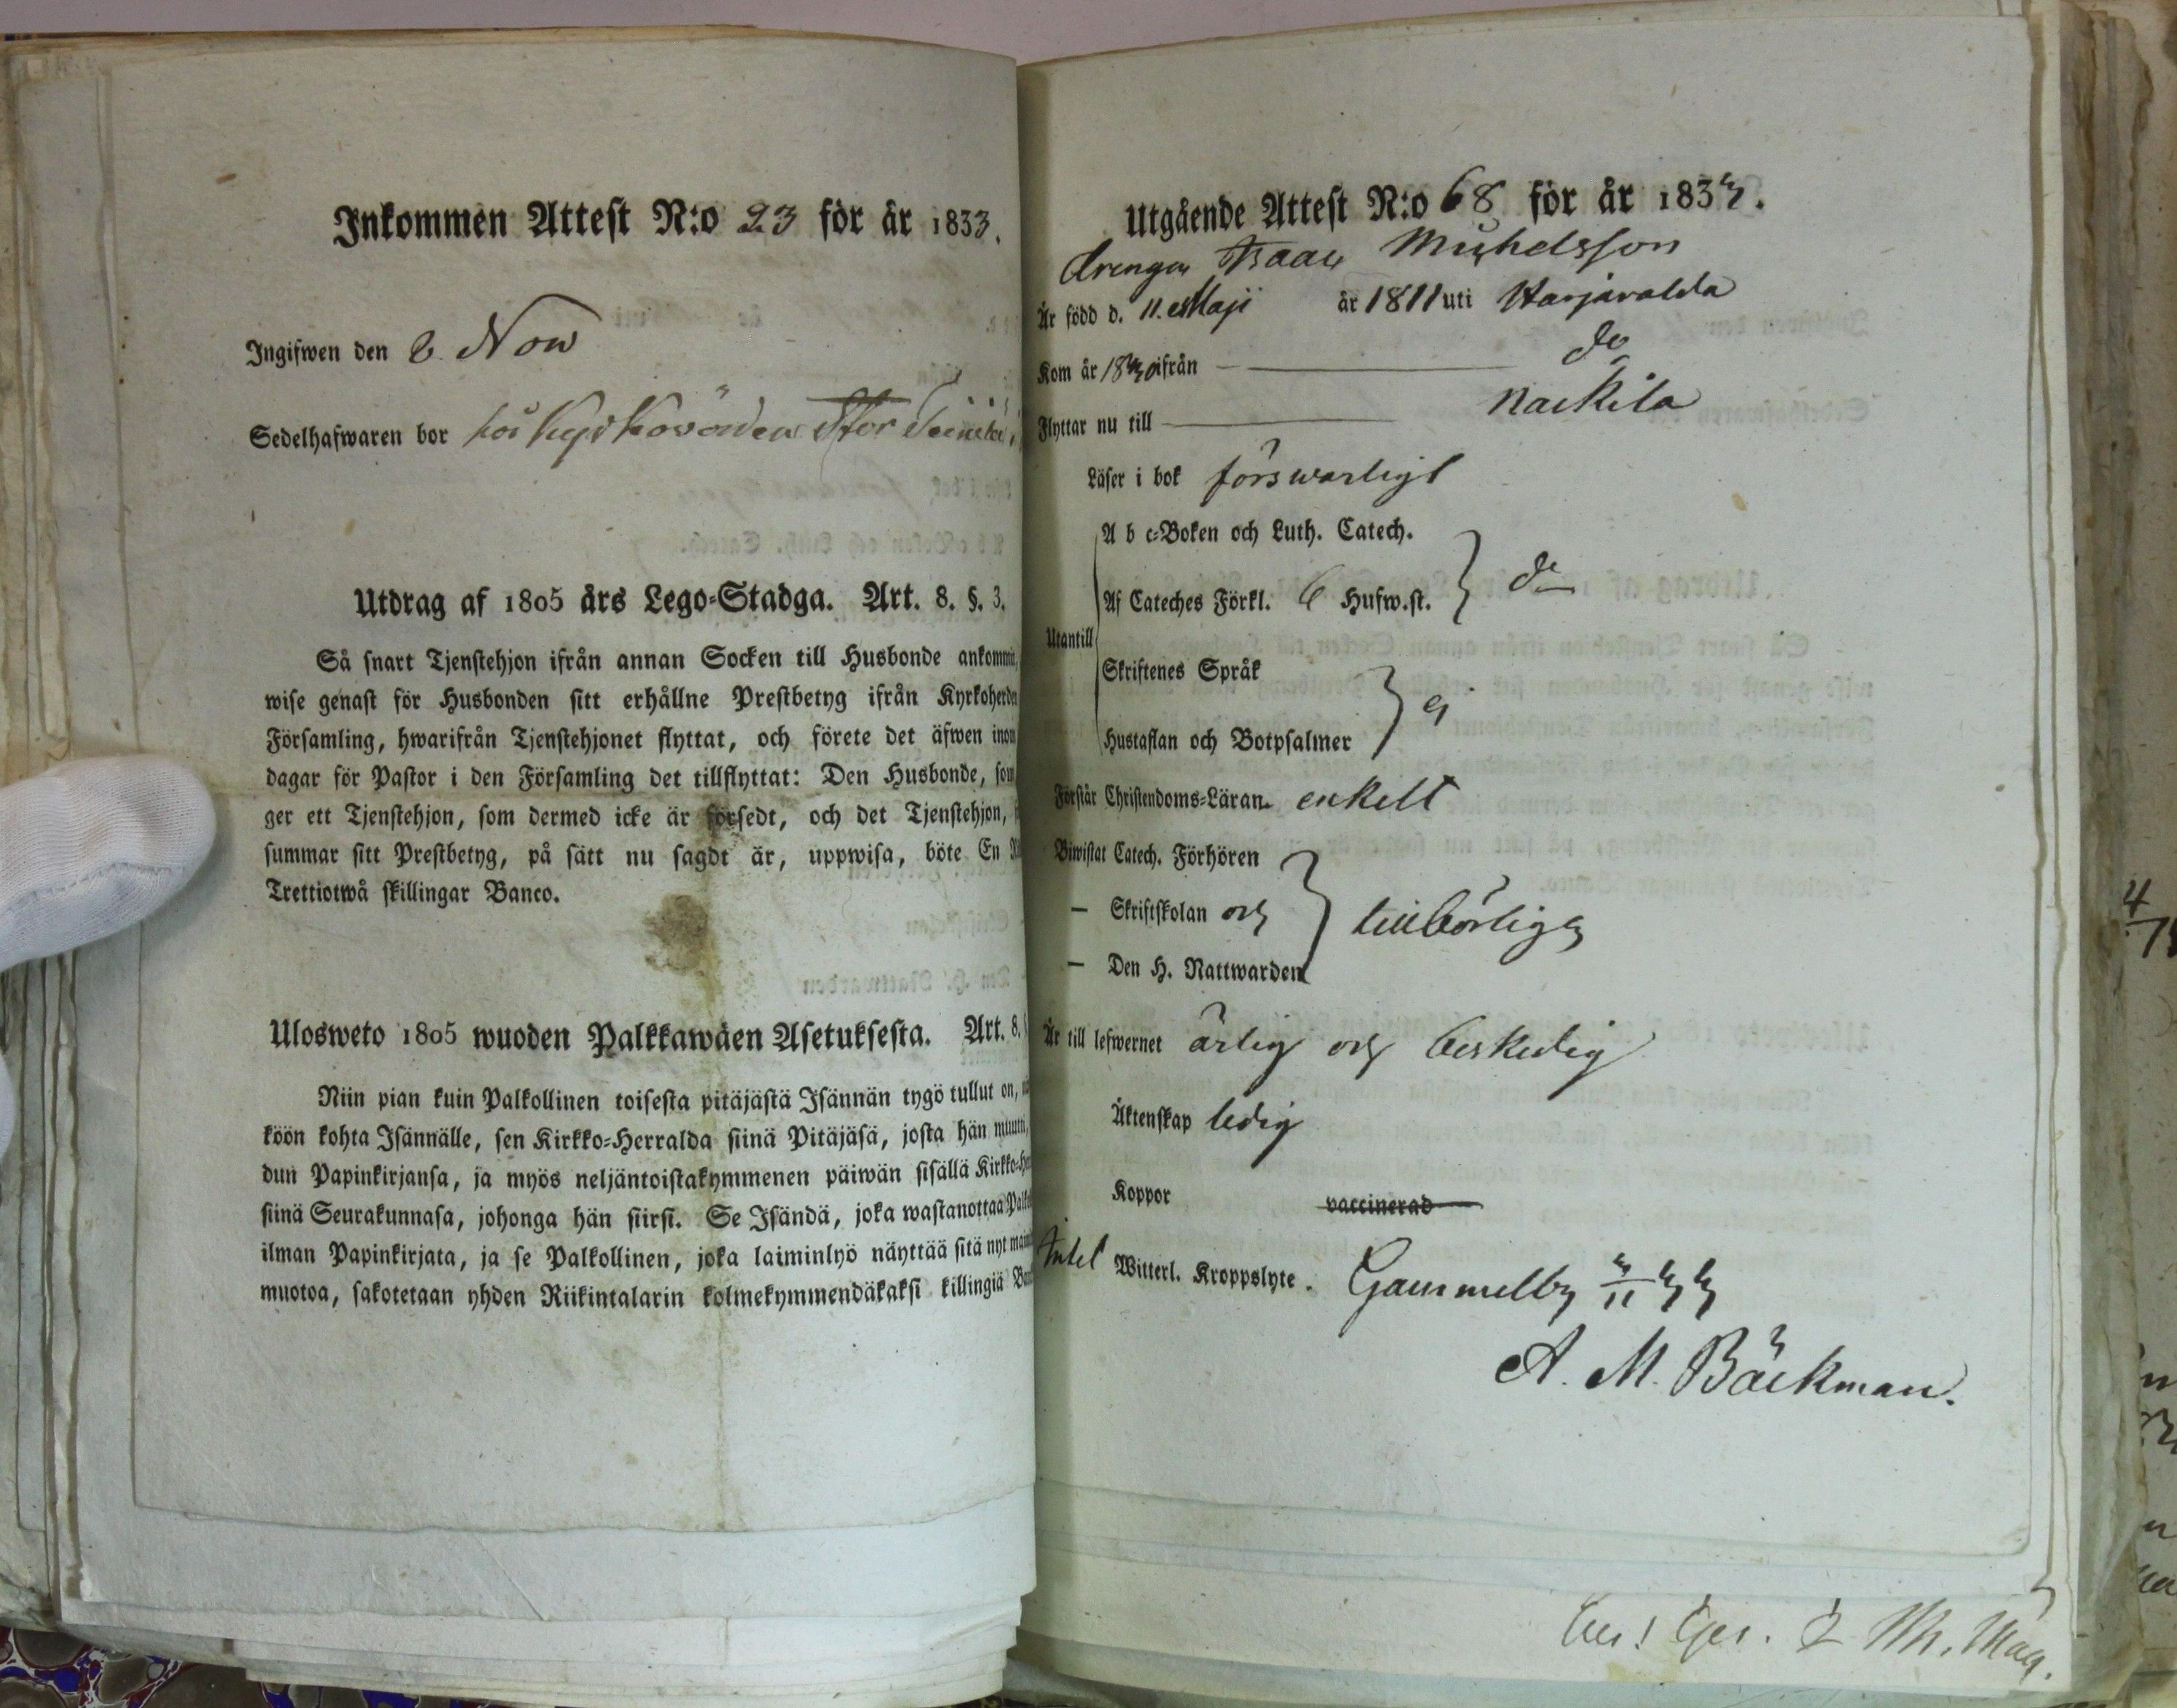 Inkommen Attest N:o 23 för år 1833.
Ingifwen den 8 Nov
Sedelhafwaren bor hos Kyrkovärden Stor
Utdrag af 1805 års Lego-Stadga. Art. 8. §. 3.
Så snart Tjenstehjon ifrån annan Socken till Husbonde ankommit,
wise genast för Husbonden sitt erhållne Prestbetyg ifrån Kyrkoherden
Församling, hwarifrån Tjenstehjonet flyttat, och förete det äfwen inom
dagar för Pastor i den Församling det tillflyttat: Den Husbonde, som
ger ett Tjenstehjon, som dermed icke är försedt, och det Tjenstehjon,
summar sitt Prestbetyg, på sätt nu sagdt är, uppwisa, böte En
Trettiotwå skillingar Banco.
Ulosweto 1805 wuoden Palkkawäen Asetuksesta. Art. 8.
Niin pian kuin Palkollinen toisesta pitäjästä Isännän tygö tullut on,
köön kohta Isännälle, sen Kirkko-Herralda siinä Pitäjäsä, josta hän muutti,
dun Papinkirjansa, ja myös neljäntoistakymmenen päiwän sisällä Kirkko-Her
siinä Seurakunnasa, johonga hän siirsi. Se Isändä, joka wastanottaa Palko
ilman Papinkirjata, ja se Palkollinen, joka laiminlyö näyttää sitä nyt main
muotoa, sakotetaan yhden Riikintalarin kolmekymmendäkaksi killingiä Ban
Utgående Attest N:o 68 för år 1833.
Drengen Isaac Michelsson
Är född d. 11. Maji år 1811 uti Harjavalda
Kom år 1830 ifrån do
Flyttar nu till Nackila
Läser i bok försvarligt
A b c-Boken och Luth. Catech.
Af Cateches Förkl. 6 Hufw.st. do
Utantill
Skriftenes Språk
ej
Hustaflan och Botpsalmer
Förstår Christendoms-Läran enkelt
Biwistat Catech. Förhören
— Skriftskolan och tillbörligen
— Den H. Nattwarden
Är till lefwernet ärlig och beskedlig
Äktenskap ledig
Koppor vaccinerad
Intet Witterl. Kroppslyte. Gammelby 3/11 33
A. M. Bäckman.